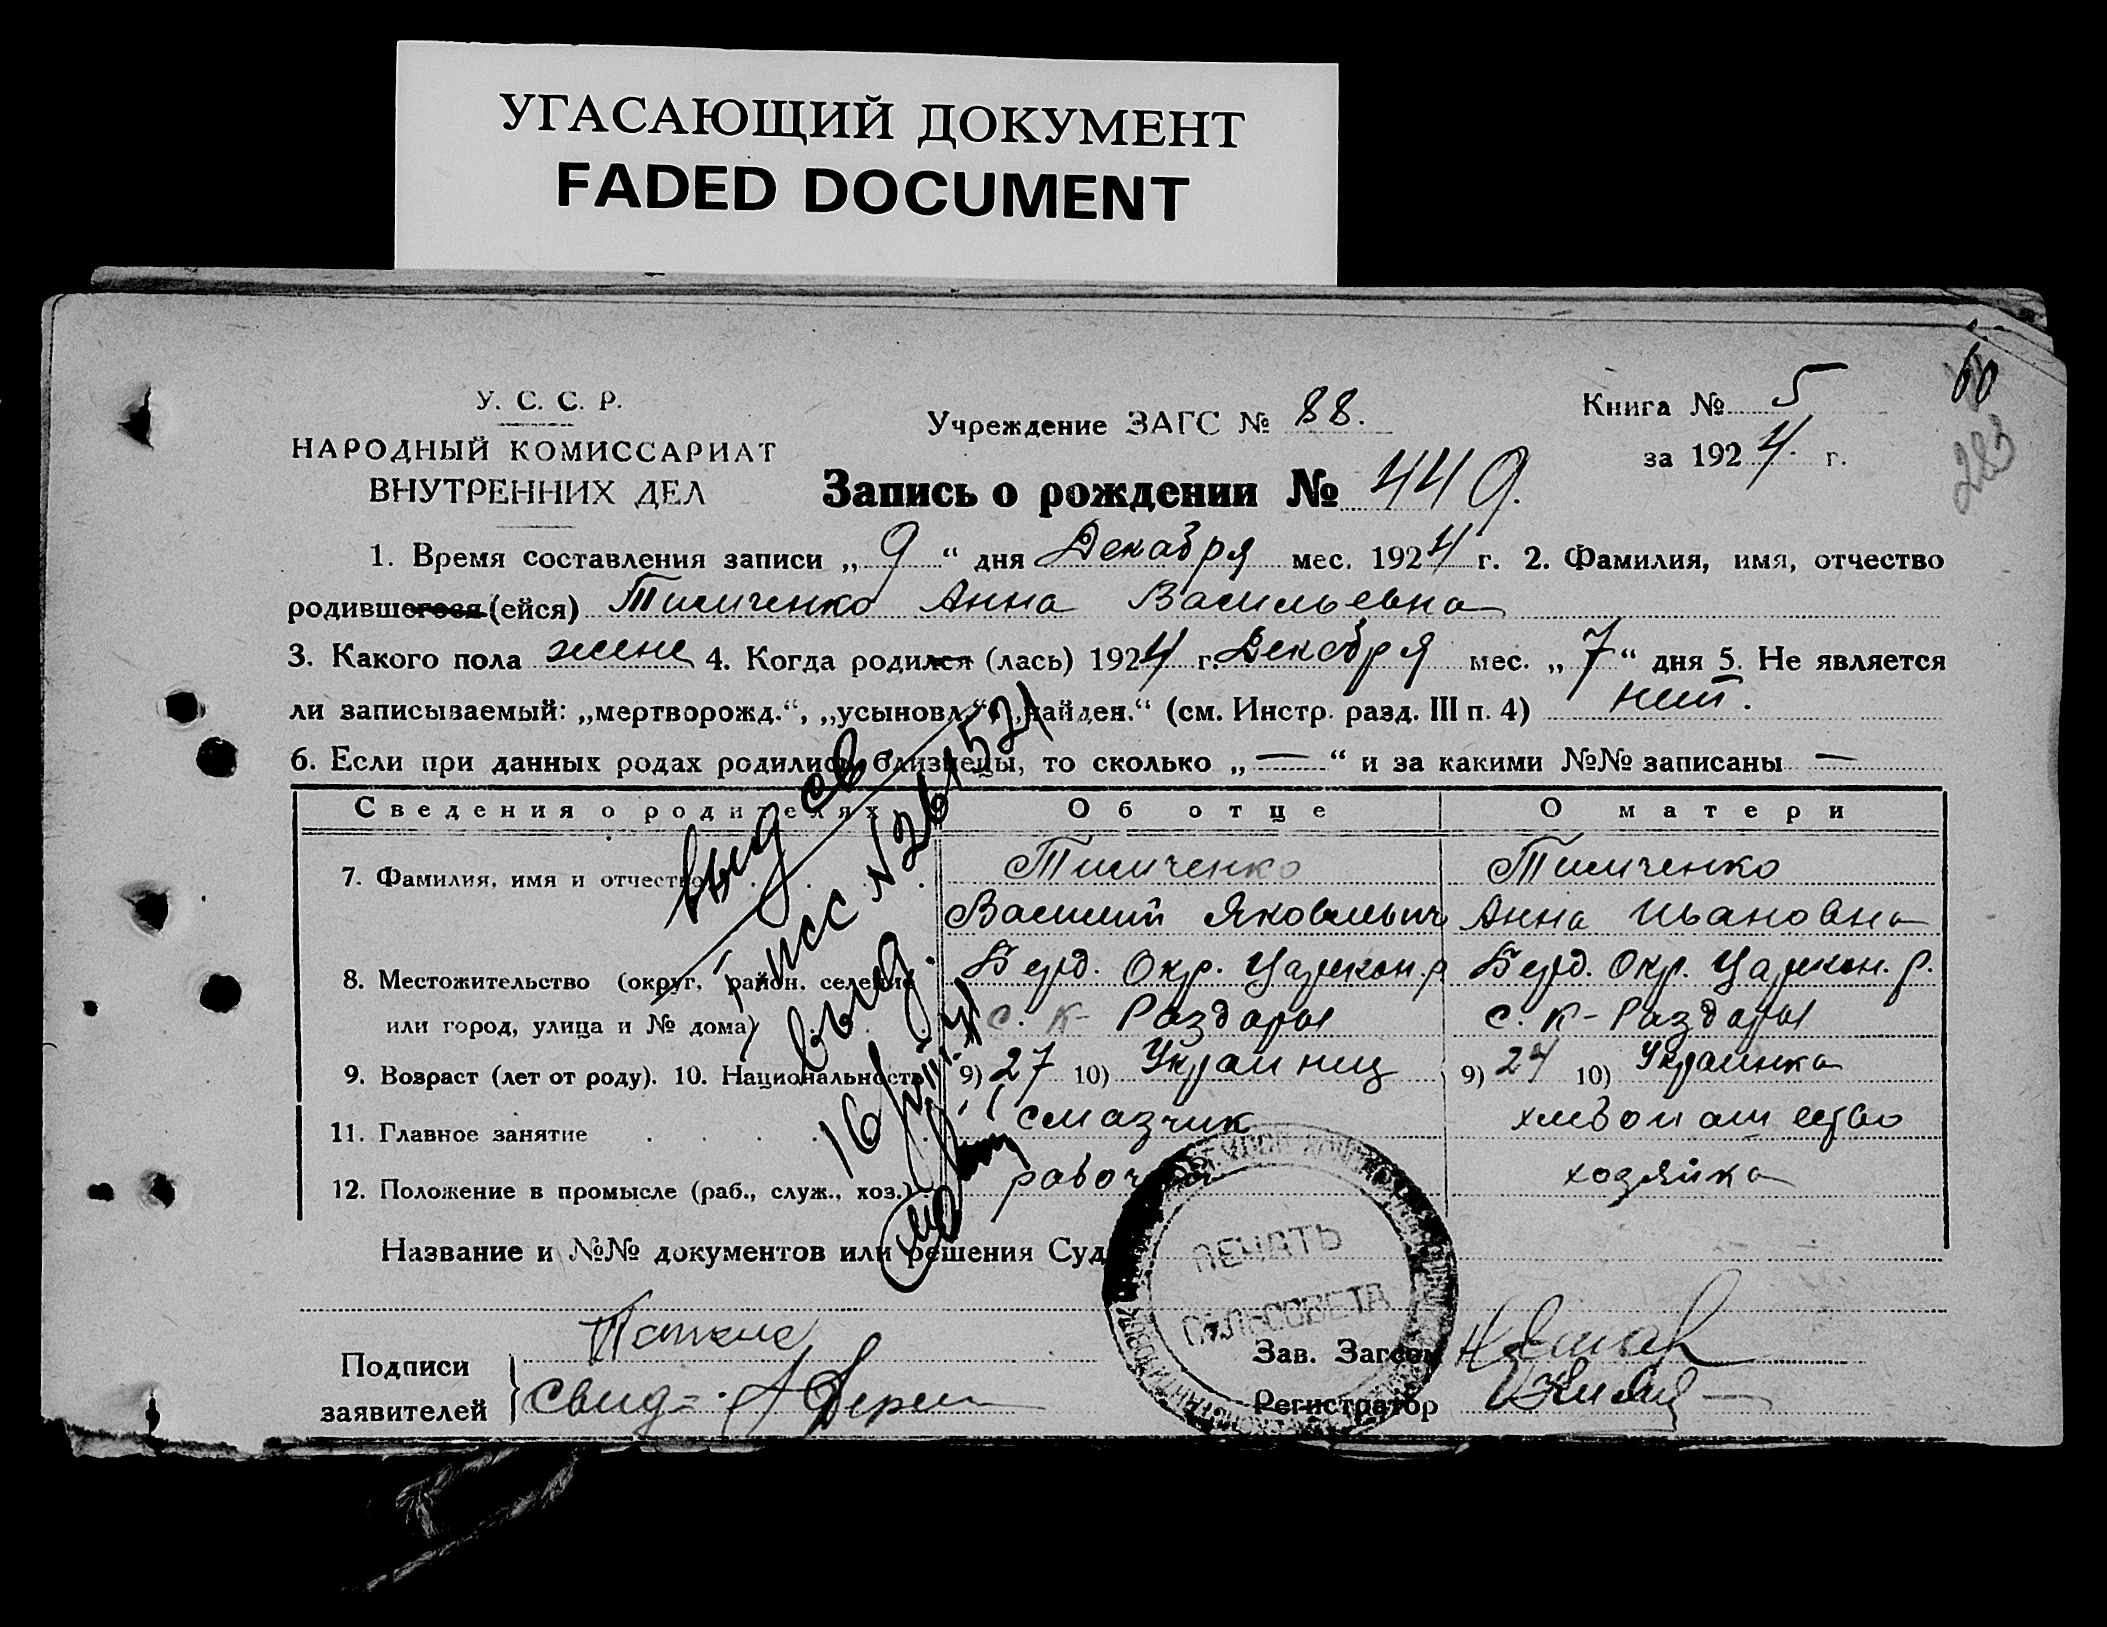 УГАСАЮЩИЙ ДОКУМЕНТ
FADED DOCUMENT
60
283
У. С. С. Р.
НАРОДНЫЙ КОМИССАРИАТ
ВНУТРЕННИХ ДЕЛ
Учреждение ЗАГС № 88.
Книга № 5
за 1924 г.
Запись о рождении № 449.
1. Время составления записи „ 9 “ дня Декабря мес. 1924 г. 2. Фамилия, имя, отчество
родившегося (ейся) Тимченко Анна Васильевна
3. Какого пола женс 4. Когда родился (лась) 1924 г. Декабря мес. „ 7 “ дня 5. Не является
ли записываемый: „мертворожд.“, „усыновл.“, „найден.“ (см. Инстр. разд. III п. 4) нит.
6. Если при данных родах родились близнецы, то сколько „ — “ и за какими №№ записаны —
Сведения о родителях Об отце О матери
7. Фамилия, имя и отчество Тимченко Тимченко
Василий Яковлевич Анна Ивановна
8. Местожительство (округ, район, селение Берд. Окр. Царекон. р Берд. Окр. Царекон. р.
или город, улица и № дома) с. К- Раздоры с. К- Раздоры
9. Возраст (лет от роду). 10. Национальность 9) 27 10) Украинец 9) 24 10) Украинка
11. Главное занятие смазчик хлебопашество
12. Положение в промысле (раб., служ., хоз.) рабочий хозяйка
выд св
№ 261521
выд.
16
Название и №№ документов или решения Суда
ПЕЧАТЬ
СЕЛЬСОВЕТА
Подписи
заявителей
свид-
Зав. Загсом
Регистратор